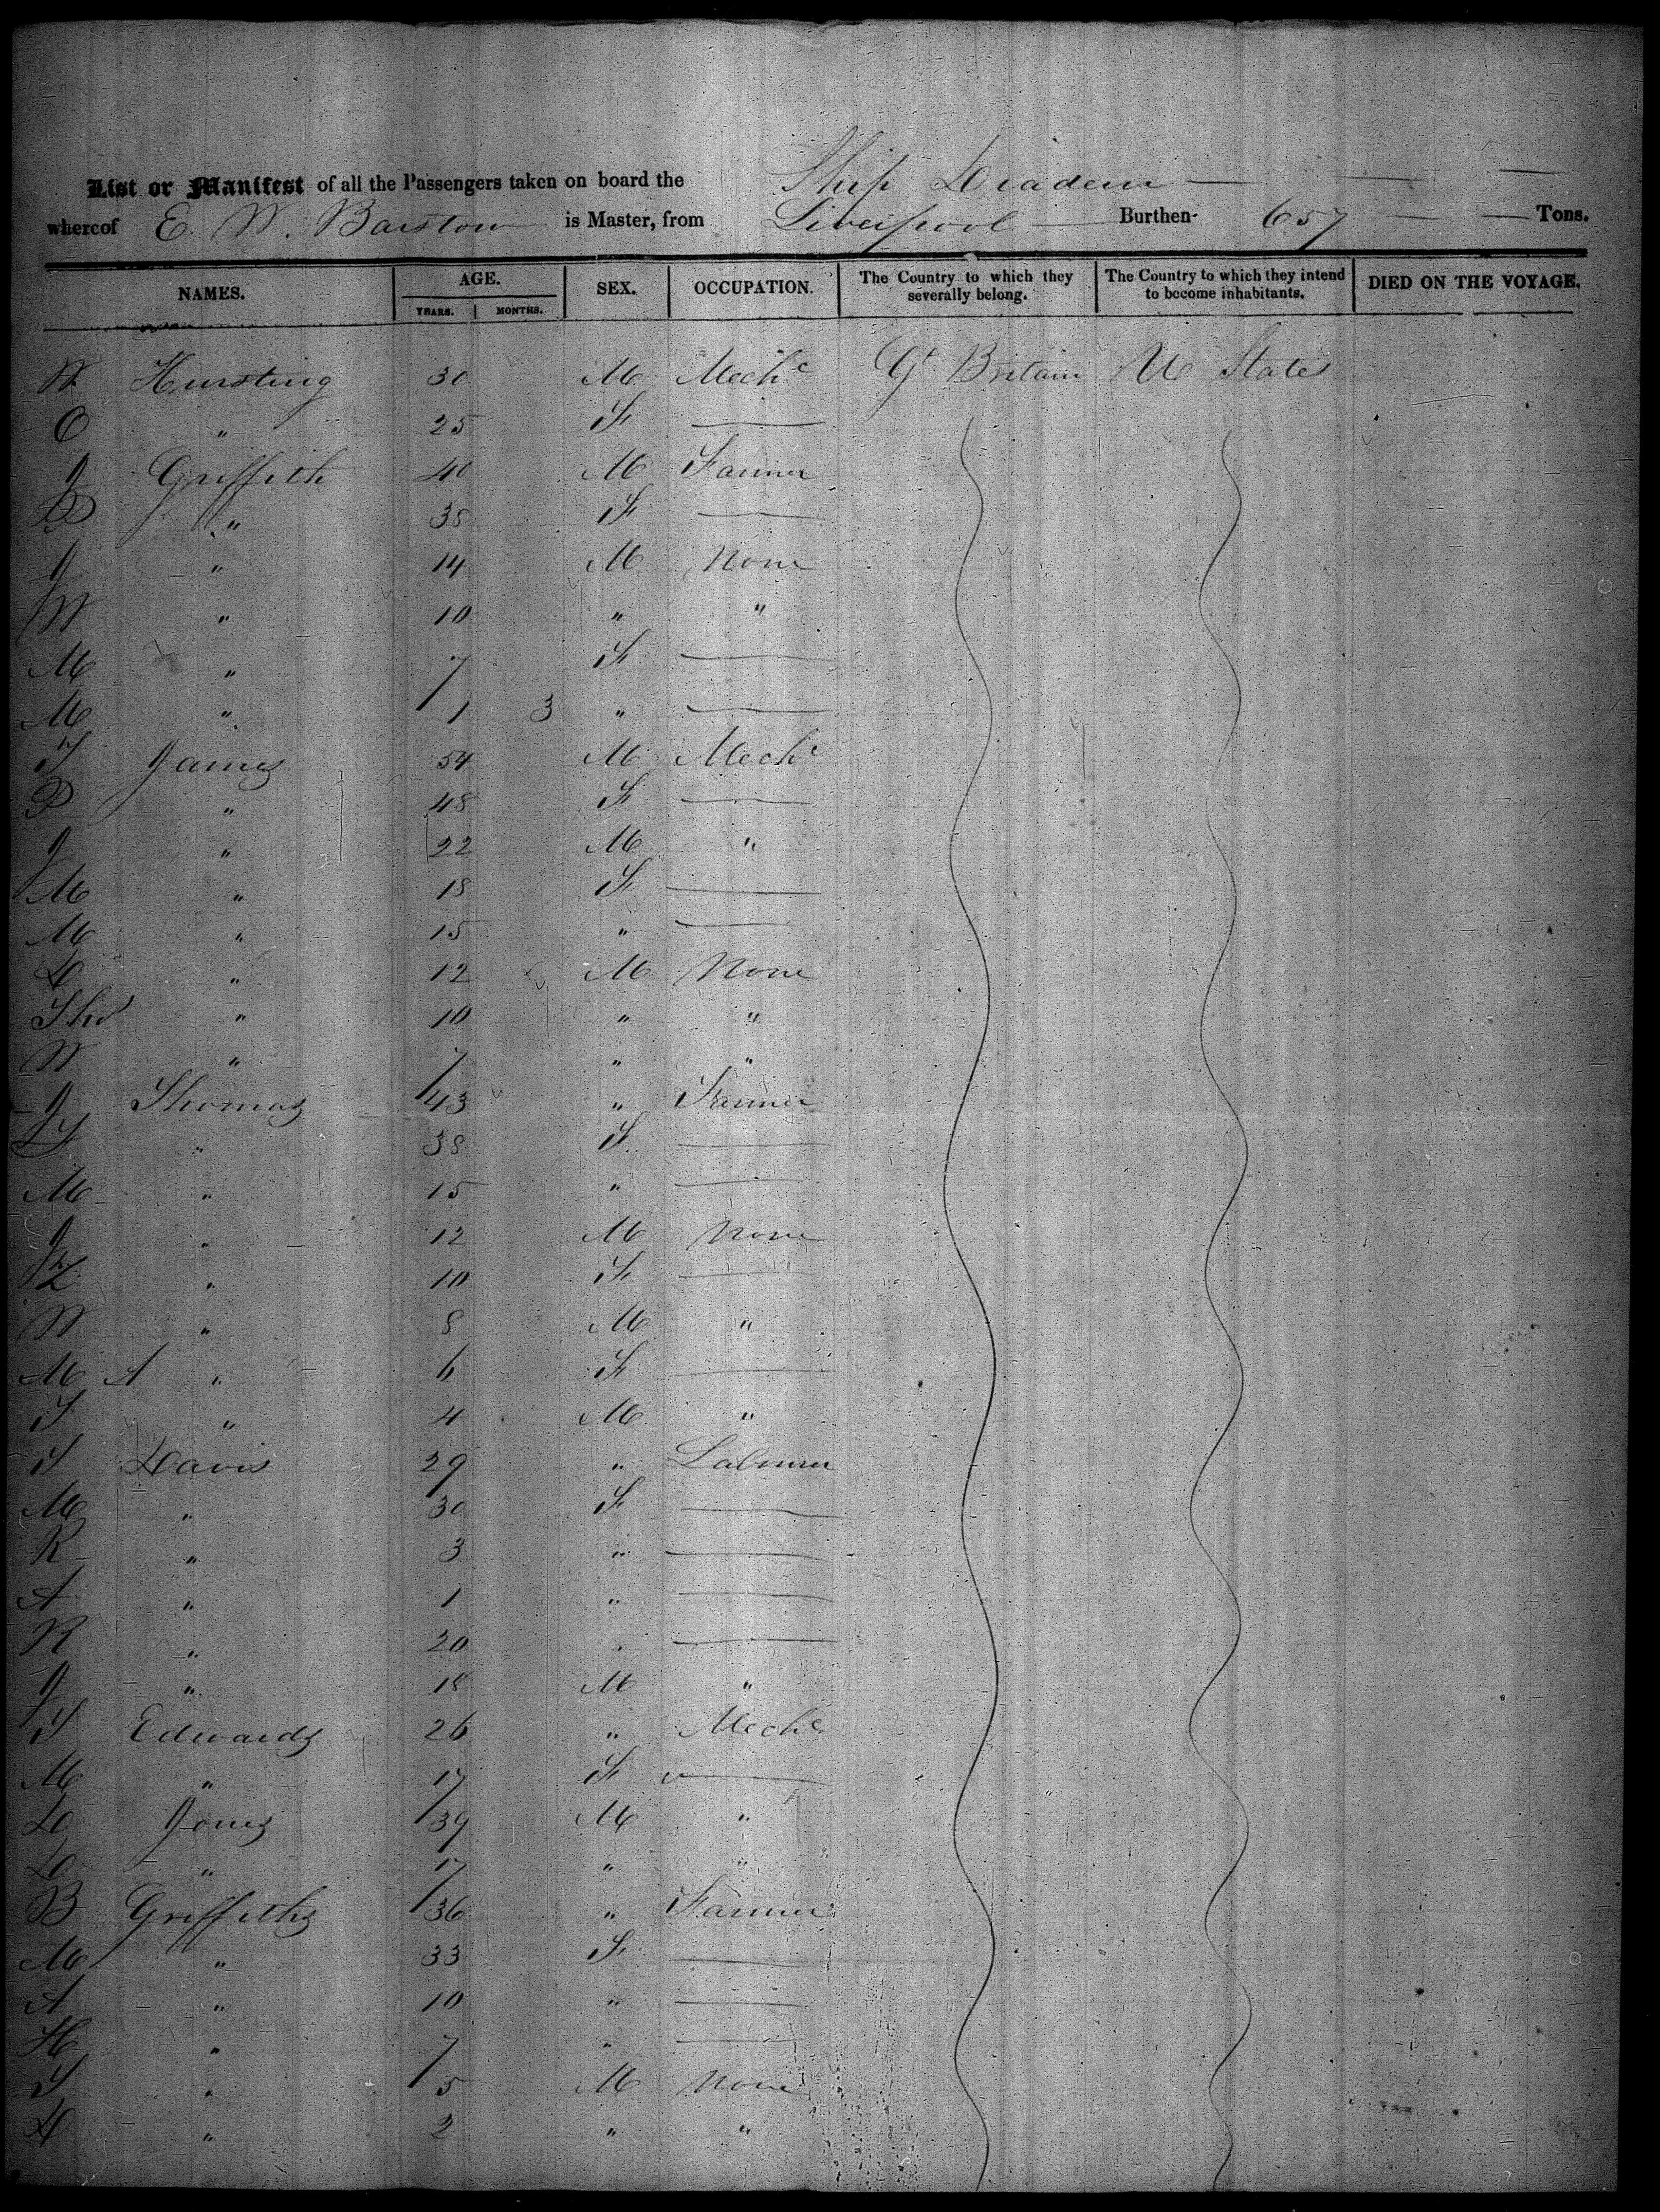 List or Manifest of all the Passengers taken on board the Ship Diadem
whereof E. W. Barstow is Master, from Liverpool Burthen 657 Tons.
NAMES. AGE. SEX. OCCUPATION. The Country to which they severally belong. The Country to which they intend to become inhabitants. DIED ON THE VOYAGE.
YEARS. MONTHS.
W Hursting 30 M Mechc Gt Britain U States
C " 25 F —
J Griffith 40 M Farmer
D " 38 F —
J " 14 M None
W " 10 " "
M " 7 F —
M " 1 3 " —
T James 54 M Mechc
P " 48 F —
J " 22 M "
M " 18 F —
M " 15 " —
D " 12 M None
Tho " 10 " "
W " 7 " "
J Thomas 43 " Farmer
" 38 F —
M " 15 " —
J " 12 M None
" 10 F —
W " 8 M "
M A " 6 F —
T " 4 M "
T Davis 29 " Labourer
M " 30 F —
R " 3 " —
A " 1 " —
R " 20 " —
J " 18 M "
T Edwards 26 " Mechc
M " 17 F —
D Jones 39 M "
D " 17 " "
B Griffiths 36 " Farmer
M " 33 F —
A " 10 " —
H " 7 " —
T " 5 M None
D " 2 " "